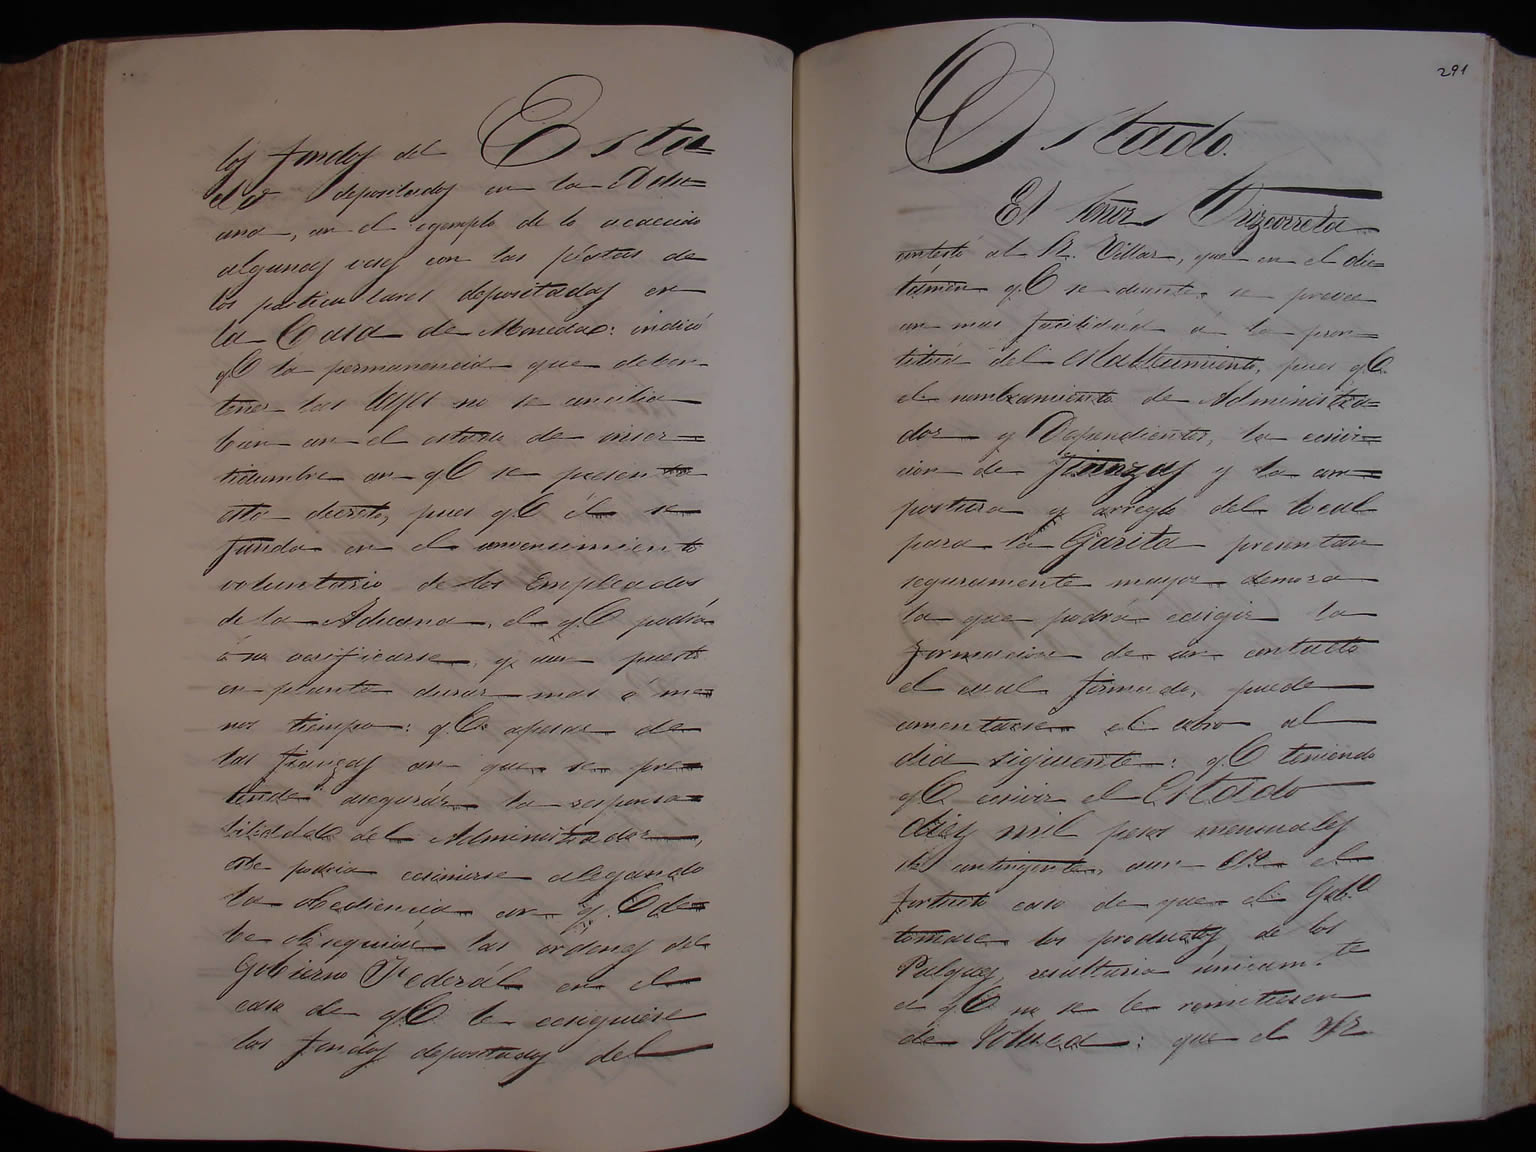 los fondos del Esta=
do depositados en la Adu=
ana, en el egemplo de lo acaecido
algunas veces con las platas de
los particulares depositadas en
la Casa de Moneda: indicó
q.e la permanencia que deben
tener las leyes no se concilia
bien con el estado de incer=
tidumbre en q.e se presenta
este decreto, pues q.e él se
funda en el convencimiento
voluntario de los Empleados
de la Aduana, el q.e podrá
ó no verificarse, y aun puesto
en planta durar mas ó me=
nos tiempo: q.e apesar de
las fianzas con que se pre=
tende asegurar la responsa=
bilidad del Administrador,
este podria ecsimirse alegando
la obediencia con q.e de=
be obsequiar las ordenes del
Gobierno Federál en el
caso de q.e le ecsiguiese
los fondos depositados del
291
Estado.
El Señor Trizcorreta
contestó al Sr. Villar, que en el dic=
támen q.e se discute, se provee
con mas facilidad á la pron=
titud del establecimiento, pues q.e
el nombramiento de Administra=
dor y Dependientes, la
cion de fianzas y la com=
postura y arreglo del local
para la Garita presentan
seguramente mayor demora
la que podrá ecsigir la
formacion de un contrato
el cual formado, puede
comenzarse el cobro al
dia siguiente: q.e teniendo
q.e el Estado
diez mil pesos mensuales
de contingente, aun en el
fortuito caso de que el Gob.o
tomase los productos de los
Pulques, resultaria unicam.te
el q.e no se le remitiesen
de Toluca: que el Sr